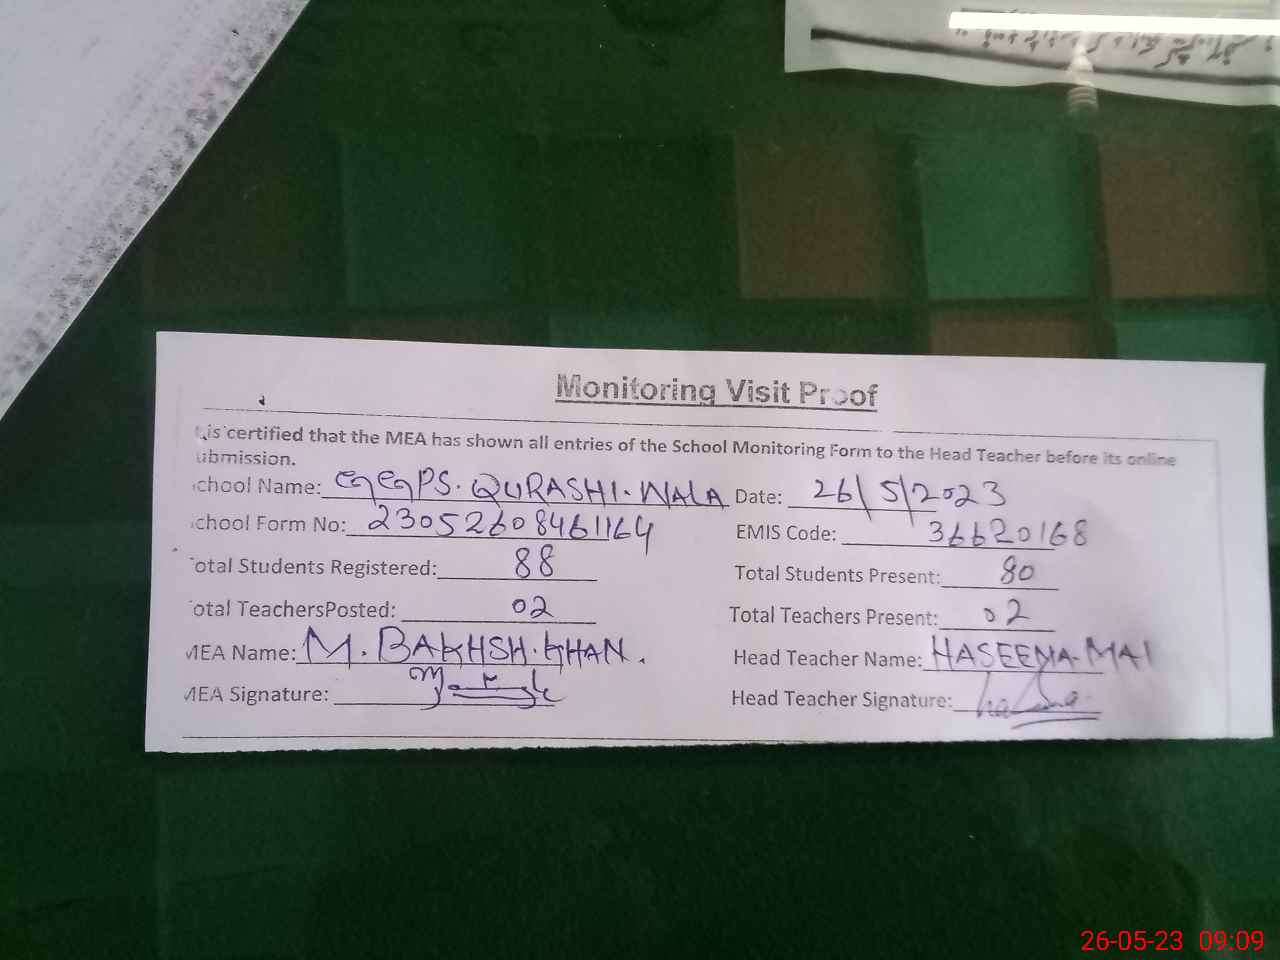 Monitoring Visit Proof
is certified that the MEA has shown all entries of the School Monitoring Form to the Head Teacher before its online
ubmission.
chool Name: GGPS. QURASHI. WALA Date: 26/5/2023
chool Form No: 23052608461164 EMIS Code: 36620168
otal Students Registered: 88 Total Students Present: 80
otal TeachersPosted: 02 Total Teachers Present: 02
MEA Name: M. BAKHSH. KHAN. Head Teacher Name: HASEENA. MAI
MEA Signature: Head Teacher Signature:
26-05-23 09:09